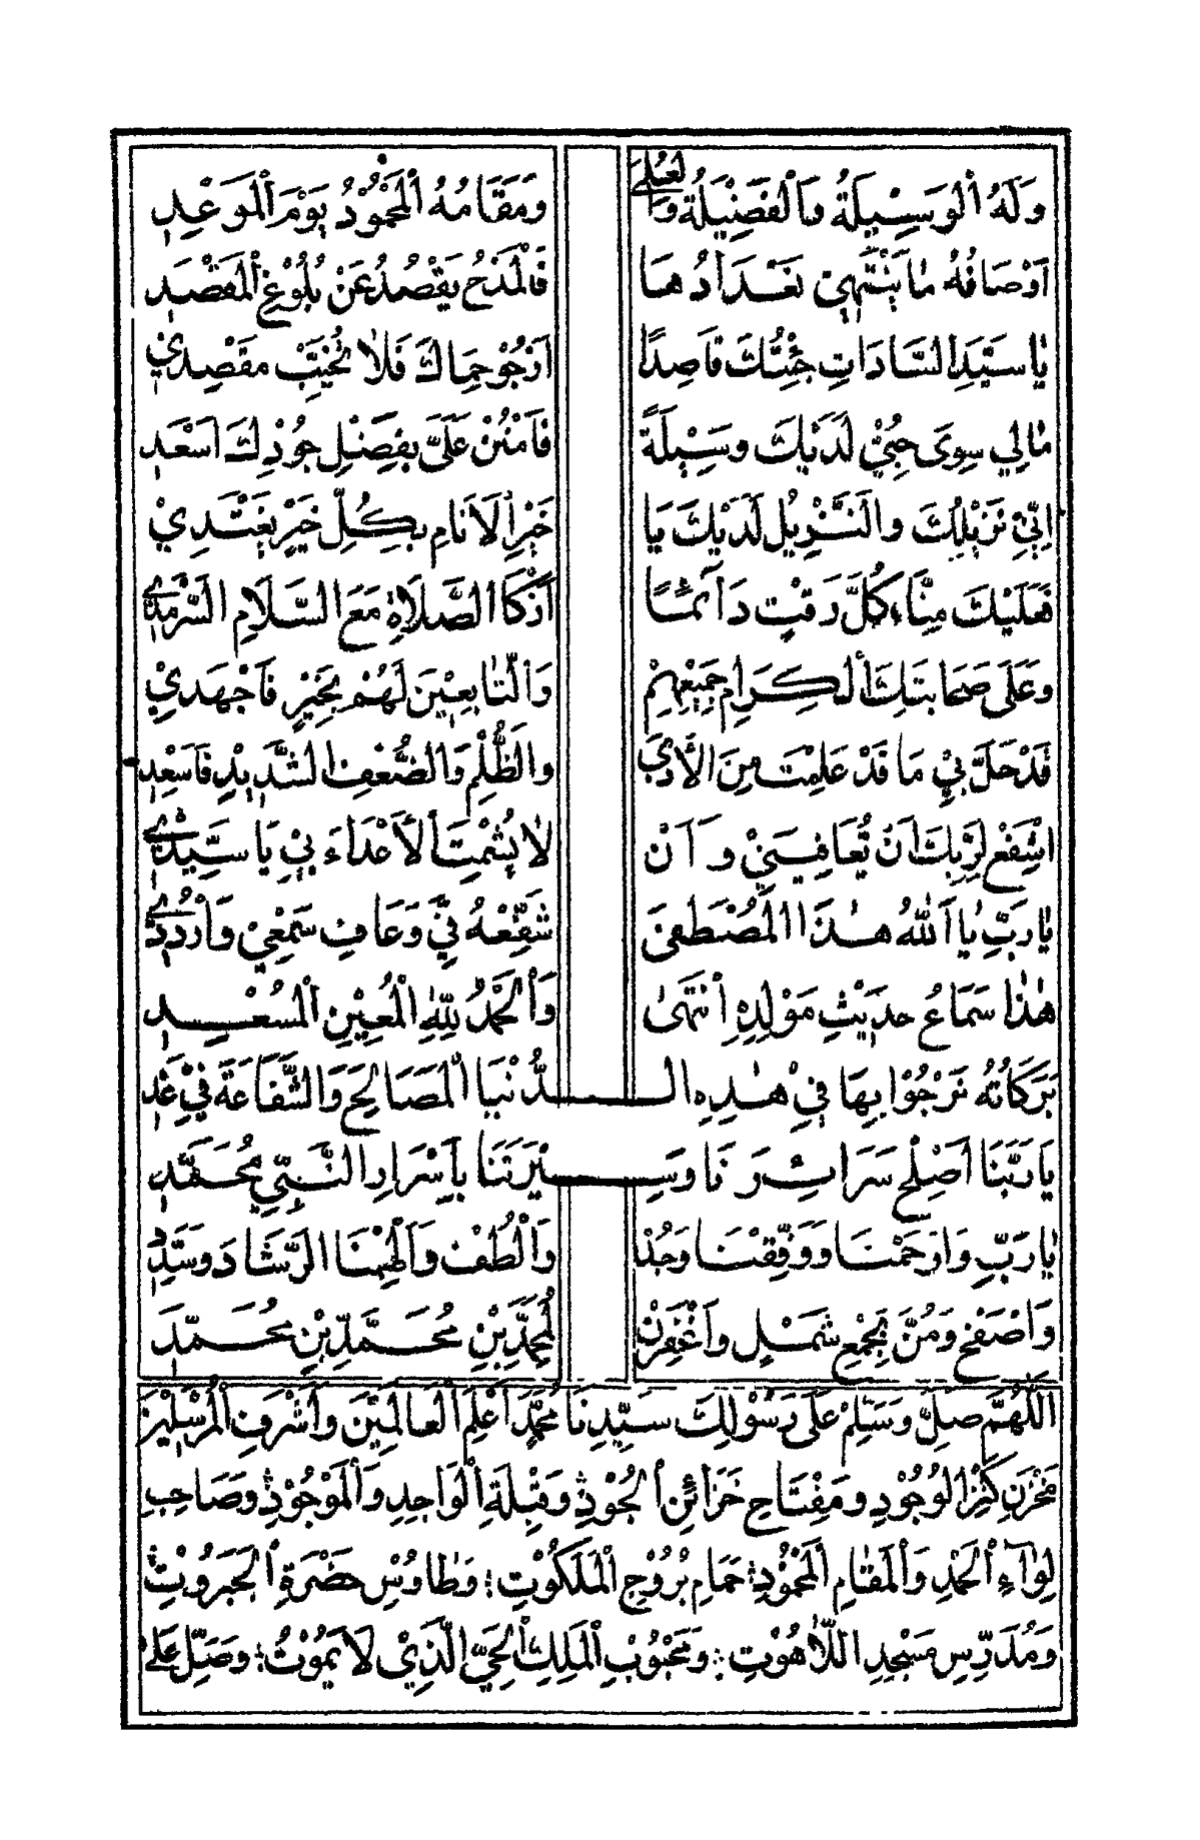 وَلَهُ الْوَسِيْلَةُ وَالْفَضِيْلَةُ وَالْعُلَى وَمَقَامُهُ الْمَحْمُوْدُ يَوْمَ الْمَوْعِدِ
اَوْصَافُهُ مَا يَنْتَهِيْ تَعْدَادُهَا فَالْمَدْحُ يَقْصُرُ عَنْ بُلُوْغِ الْمَقْصَدِ
يَا سَيِّدَ السَّادَاتِ جِئْتُكَ قَاصِدًا اَرْجُوْ حِمَاكَ فَلَا تُخَيِّبْ مَقْصِدِيْ
مَالِي سِوَى حُبِّيْ لَدَيْكَ وَسِيْلَةً فَامْنُنْ عَلَيَّ بِفَضْلِ جُوْدِكَ اَسْعَدِ
اِنِّيْ نَزِيْلُكَ وَالنَّزِيْلُ لَدَيْكَ يَا خَيْرَ الْاَنَامِ بِكُلِّ خَيْرٍ يَغْتَدِيْ
فَعَلَيْكَ مِنَّا كُلَّ وَقْتٍ دَائِمًا اَزْكَا الصَّلَاةِ مَعَ السَّلَامِ السَّرْمَدِيْ
وَعَلَى صَحَابَتِكَ الْكِرَامِ جَمِيْعِهِمْ وَالتَّابِعِيْنَ لَهُمْ بِخَيْرٍ فَاجْهَدِيْ
قَدْ حَلَّ بِيْ مَا قَدْ عَلِمْتَ مِنَ الْاَذٰى وَالظُّلْمِ وَالضُّعْفِ الشَّدِيْدِ فَاسْعِدِ
اشْفَعْ لِرَبِّكَ اَنْ تُعَافِيَنِيْ وَ اَنْ لَا يُشْمِتَ الْاَعْدَاءَ بِيْ يَا سَيِّدِيْ
يَا رَبِّ يَا اَللهُ هٰذَا الْمُصْطَفَى شَفِّعْهُ فِيَّ وَعَافِ سَمْعِيْ وَارْدُدِيْ
هٰذَا سَمَاعُ حَدِيْثِ مَوْلِدِهِ انْتَهَى وَالْحَمْدُ لِلّٰهِ الْمُعِيْنِ الْمُسْعِدِ
بَرَكَاتُهُ نَرْجُوْا بِهَا فِيْ هٰذِهِ الدُّنْيَا الْمَصَالِحَ وَالشَّفَاعَةَ فِيْ غَدِ
يَا رَبَّنَا اَصْلِحْ سَرَائِرَنَا وَسِيْرَتَنَا بِاَسْرَارِ النَّبِيِّ مُحَمَّدِ
يَا رَبِّ وَارْحَمْنَا وَوَفِّقْنَا وَجُدْ وَالْطُفْ وَاَلْهِمْنَا الرَّشَادَ وَسَدِّدِ
وَاصْفَحْ وَمُنَّ بِجَمْعِ شَمْلٍ وَاغْفِرَنْ لِمُحَمَّدِ بْنِ مُحَمَّدِ بْنِ مُحَمَّدِ
اَللّٰهُمَّ صَلِّ وَسَلِّمْ عَلَى رَسُوْلِكَ سَيِّدِنَا مُحَمَّدٍ اَعْلَمِ الْعَالَمِيْنَ وَاَشْرَفِ الْمُرْسَلِيْنَ
مَخْزَنِ كَنْزِ الْوُجُوْدِ وَمِفْتَاحِ خَزَائِنِ الْجُوْدِ؛ وَقِبْلَةِ الْوَاجِدِ وَالْمَوْجُوْدِ؛ وَصَاحِبِ
لِوَآءِ الْحَمْدِ وَالْمَقَامِ الْمَحْمُوْدِ؛ حَمَامِ بُرُوْجِ الْمَلَكُوْتِ؛ وَطَاوُسِ حَضْرَةِ الْجَبَرُوْتِ
وَمُدَرِّسِ مَسْجِدِ اللَّاهُوْتِ؛ وَمَحْبُوْبِ الْمَلِكِ الْحَيِّ الَّذِيْ لَا يَمُوْتُ؛ وَصَلِّ عَلَى